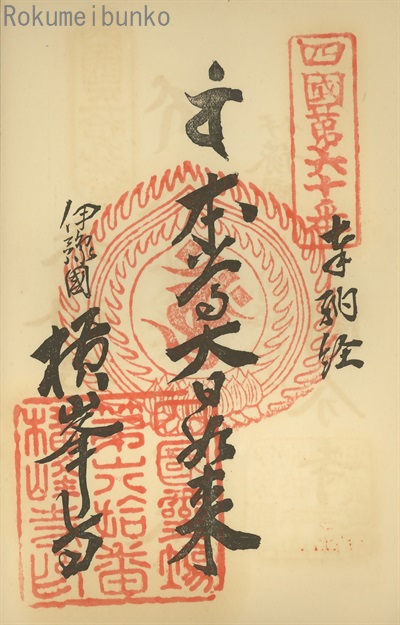 Rokumeibunko
四國第六十番
奉納経
本尊大日如来
伊豫國
横峰寺
四國霊場
第六拾番
横峰寺印